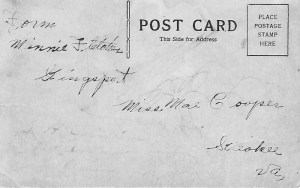 Form
Minnie
POST CARD
This Side for Address
PLACE
POSTAGE
STAMP
HERE
Miss Mae Cooper
Va,